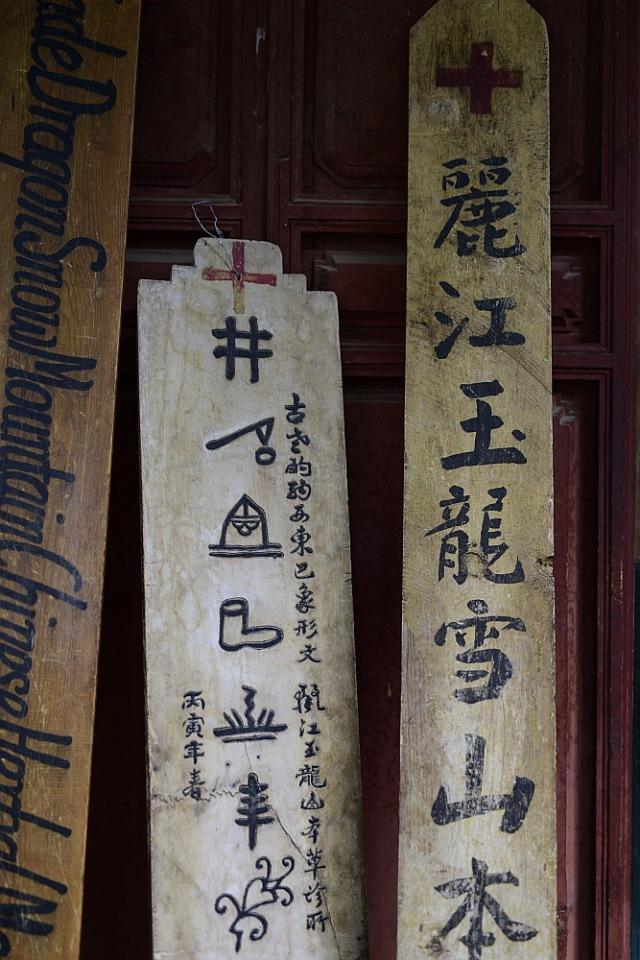 Dragon Snow Mountain Chinese Herbal
古老的納西東巴象形文 麗江玉龍山本草診所
丙寅年春
麗江玉龍雪山本